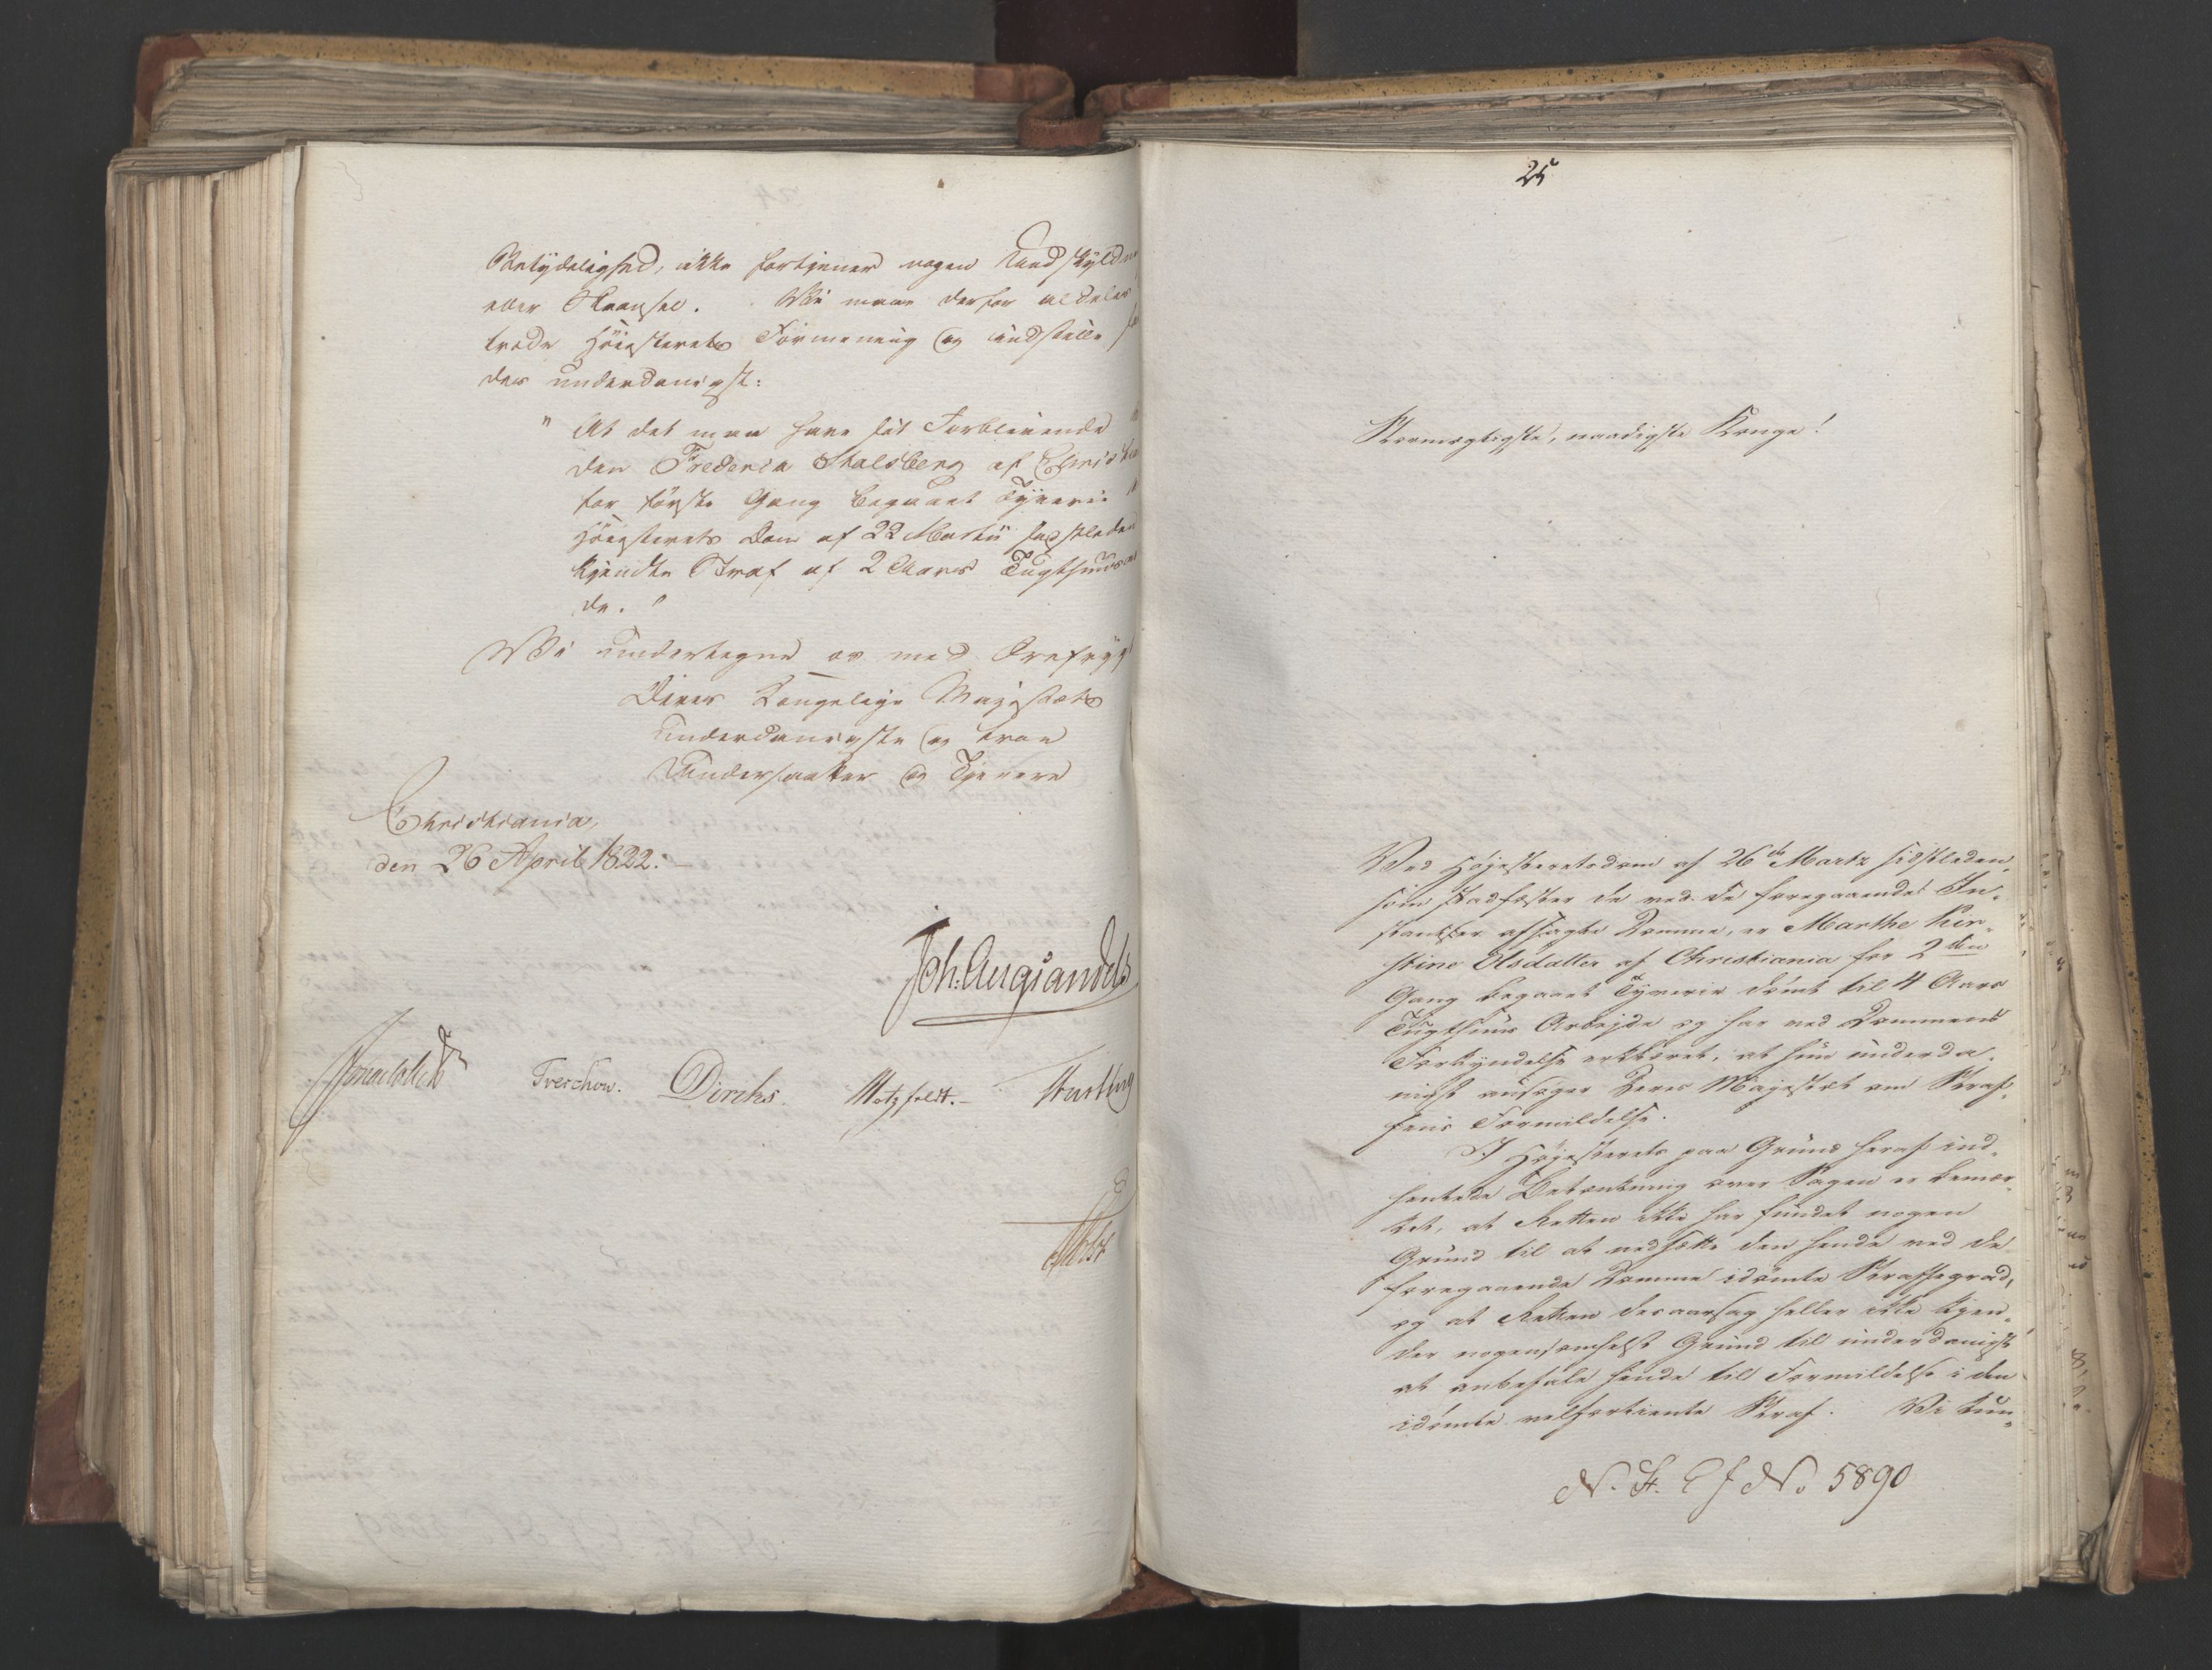 Betydelighed, ikke fortjener nogen Undskyldn
eller Skaansel. Vi maae derfor aldeles
træde Höiesterets Formening og indstille
des underdanigst:
" At det maa have sit Forblivende
den Frederica Stalsberg af Christia
for förste Gang begaaet Tyverie
Höiesterets Dom af 22 Martii sidstleden
kjendte Straf af 2 Aars Tugthuus
de. "
Vi undertegne os med Ærefryg
Deres Kongelige Majestæts
underdanigste og troe
Undersaatter og Tjenere
Christiania,
den 26 April 1822.
Joh: Aug: Sandels
Treschow. Diriks. Motzfeldt.
25
Stormægtigste, naadigste Konge!
Ved Höjesteretsdom af 26de Marts sidstleden,
som stadfæster de ved de foregaaende In-
stantser afsagte Domme, er Marthe Kir-
stine Olsdatter af Christiania for 2den
Gang begaaet Tyverie dömt til 4 Aars
Tugthuus Arbejde og har ved Dommens
Forkyndelse erklæret, at hun underda-
nigst ansöger Deres Majestæt om Straf-
fens Formildelse.
I Höjesterets paa Grund heraf ind-
hentede Betænkning over Sagen er bemær-
ket, at Retten ikke har fundet nogen
Grund til at nedsætte den hende ved de
foregaaende Domme idömte Straffegrad,
og at Retten desaarsag heller ikke kjen-
der nogensomhelst Grund til underdanigst
at anbefale hende til Formildelse i den
idömte velfortiente Straf. Vi kun-
N. St. E f N. 5890